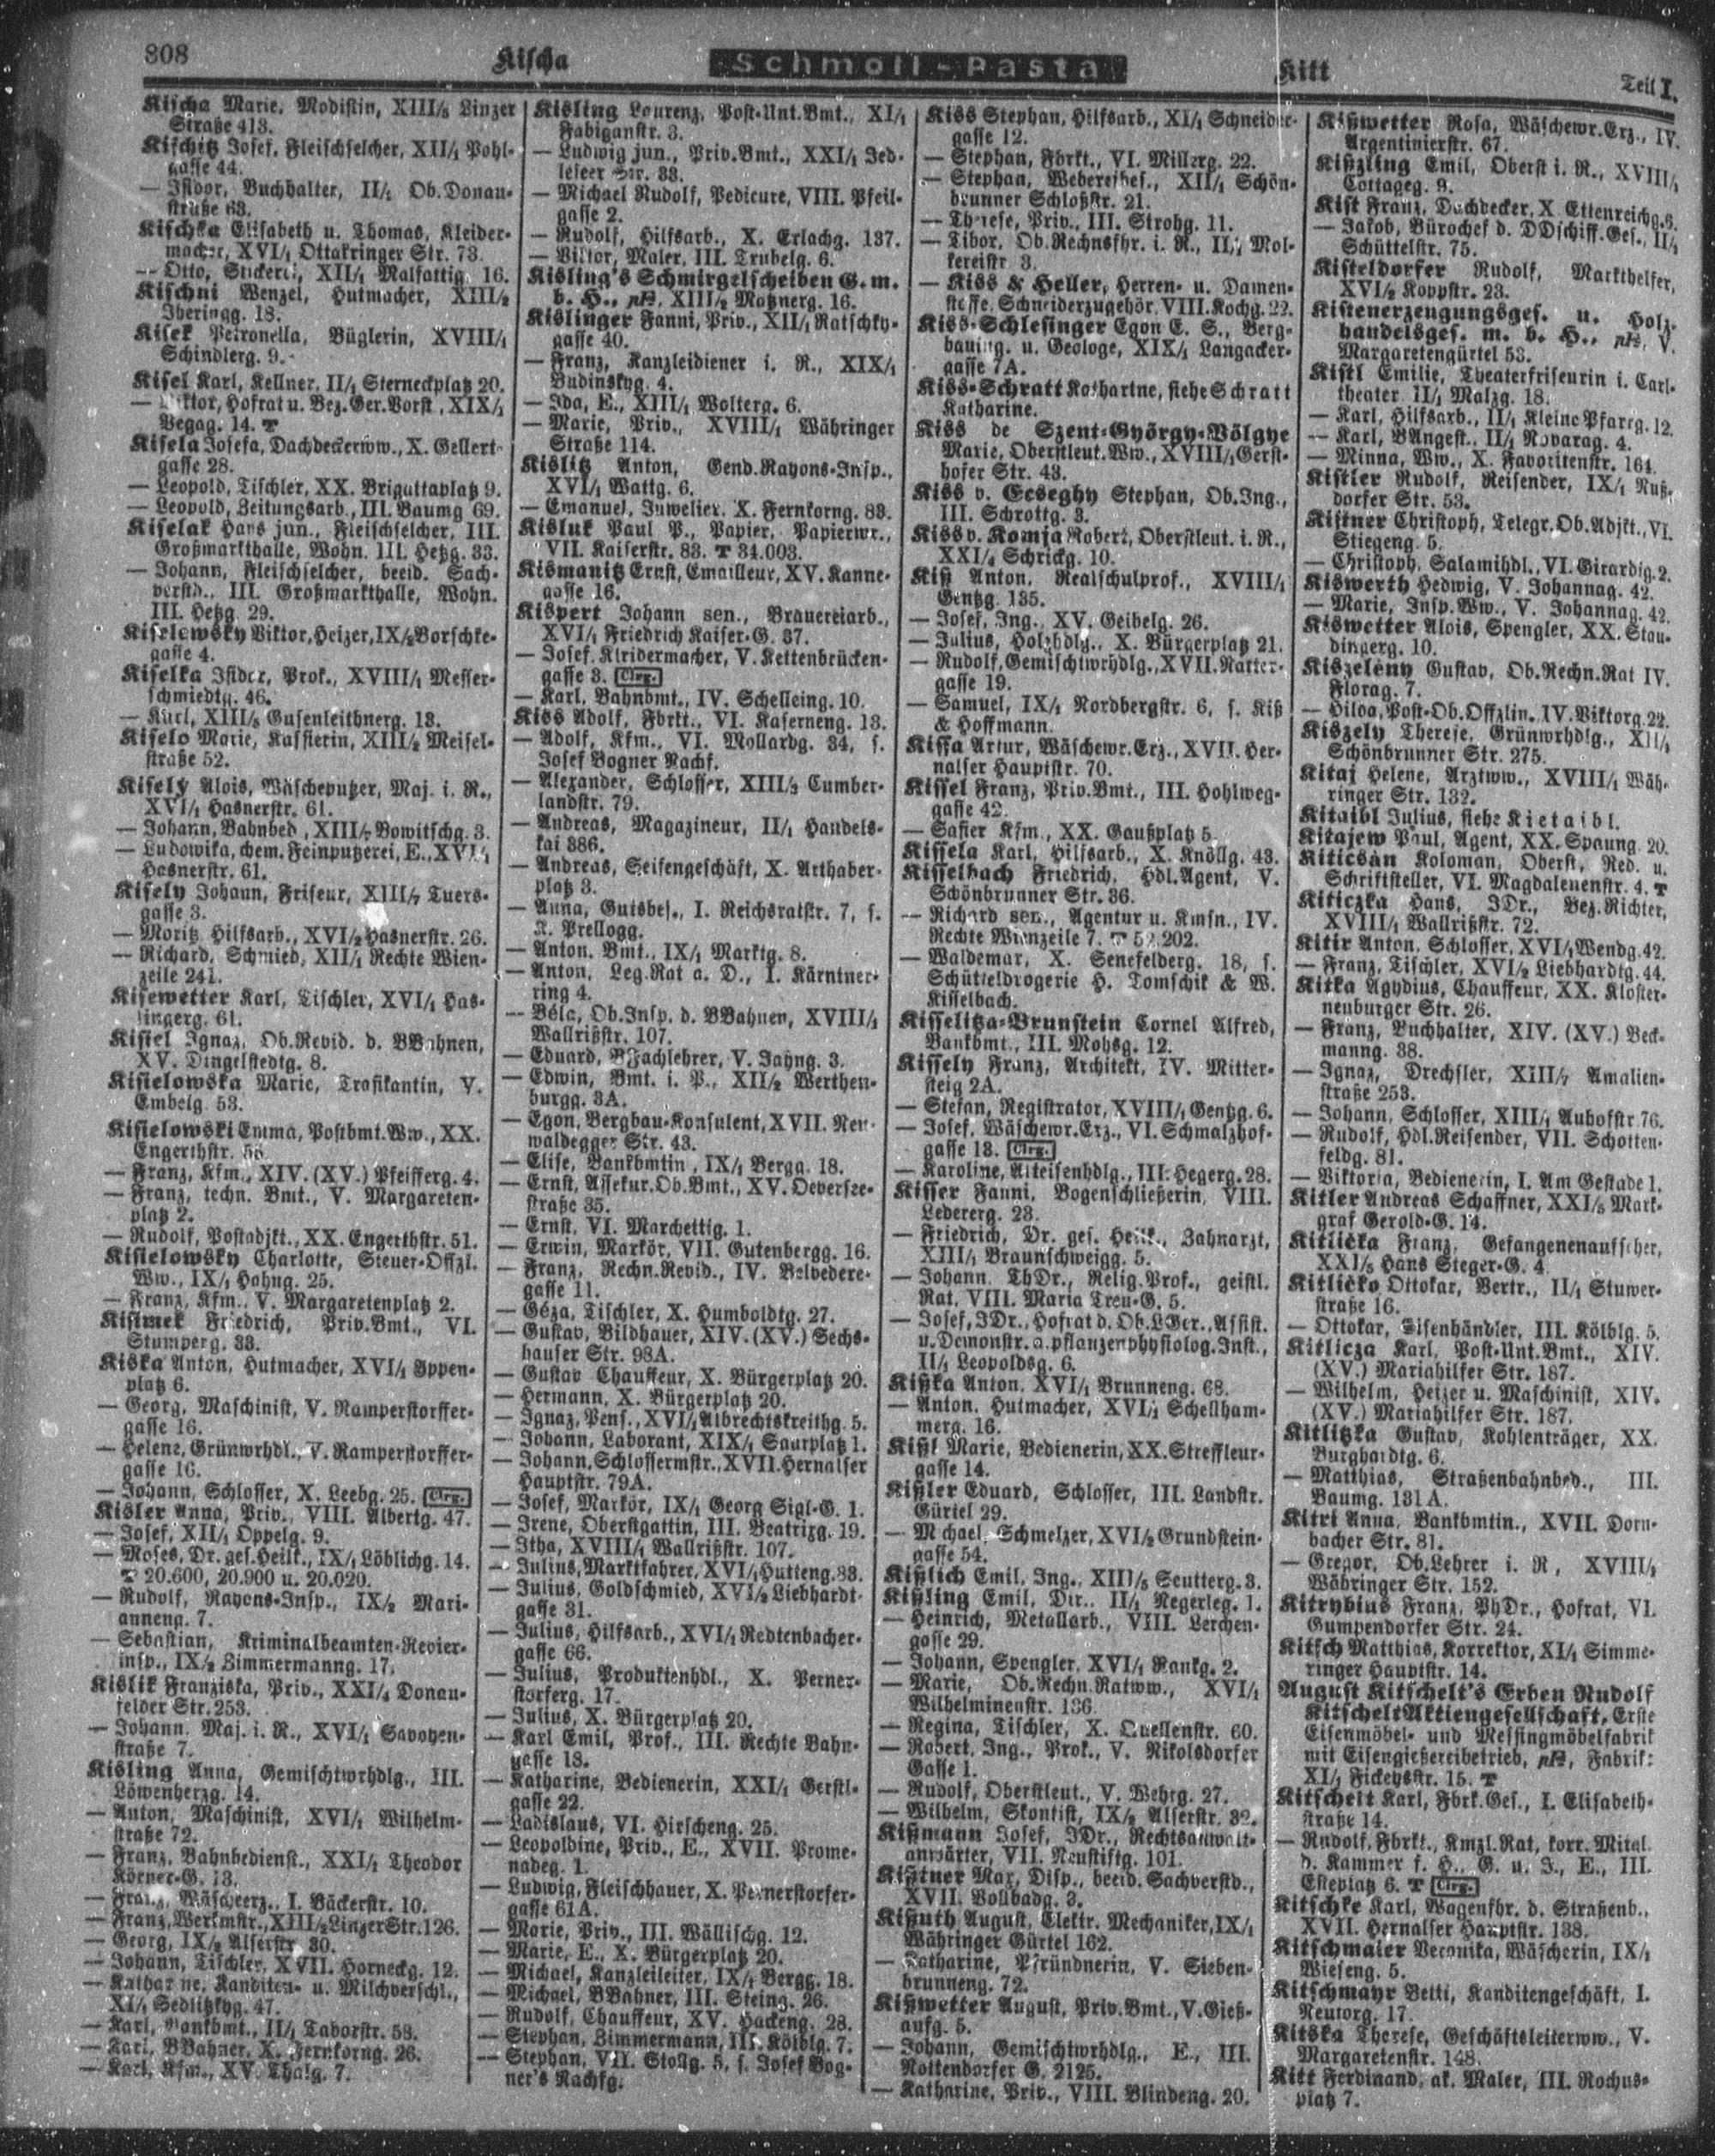 808
Kischa
Schmoll-Pasta
Kitt
Teil I.
Kischa Marie, Modistin, XIII/5 Linzer
Straße 413.
Kischitz Josef, Fleischselcher, XII/1 Pohl-
gasse 44.
— Isidor, Buchhalter, II/1 Ob.Donau-
straße 63.
Kischka Elisabeth u. Thomas, Kleider-
macher, XVI/1 Ottakringer Str. 73.
— Otto, Stickerei, XII/1 Malfattig. 16.
Kischni Wenzel, Hutmacher, XIII/2
Iheringg. 18.
Kisek Petronella, Büglerin, XVIII/1
Schindlerg. 9.
Kisel Karl, Kellner, II/1 Sterneckplatz 20.
— Viktor, Hofrat u. Bez.Ger.Vorst., XIX/1
Vegag. 14. T
Kisela Josefa, Dachdeckerww., X. Gellert-
gasse 28.
— Leopold, Tischler, XX. Brigittaplatz 9.
— Leopold, Zeitungsarb., III. Baumg 69.
Kiselak Hans jun., Fleischselcher, III.
Großmarkthalle, Wohn. III. Hetzg. 33.
— Johann, Fleischselcher, beeid. Sach-
verstd., III. Großmarkthalle, Wohn.
III. Hetzg. 29.
Kiselewsky Viktor, Heizer, IX/2 Borschke-
gasse 4.
Kiselka Isidor, Prok., XVIII/1 Messer-
schmiedtg. 46.
— Karl, XIII/5 Gusenleithnerg. 13.
Kiselo Marie, Kassierin, XIII/2 Meisel-
straße 52.
Kiselý Alois, Wäscheputzer, Maj. i. R.,
XVI/1 Hasnerstr. 61.
— Johann, Bahnbed., XIII/7 Bowitschg. 3.
— Ludowika, chem. Feinputzerei, E., XVI/1
Hasnerstr. 61.
Kisely Johann, Friseur, XIII/7 Tuers-
gasse 3.
— Moritz Hilfsarb., XVI/2 Hasnerstr. 26.
— Richard, Schmied, XII/1 Rechte Wien-
zeile 241.
Kisewetter Karl, Tischler, XVI/1 Has-
lingerg. 61.
Kisiel Ignaz, Ob.Revid. d. BBahnen,
XV. Dingelstedtg. 8.
Kisielowska Marie, Trafikantin, V.
Embelg. 53.
Kisielowski Emma, Postbmt.Ww., XX.
Engerthstr. 56.
— Franz, Kfm., XIV. (XV.) Pfeifferg. 4.
— Franz, techn. Bmt., V. Margareten-
platz 2.
— Rudolf, Postadjkt., XX. Engerthstr. 51.
Kisielowsky Charlotte, Steuer-Offzl.
Ww., IX/1 Hahng. 25.
— Franz, Kfm., V. Margaretenplatz 2.
Kisimek Friedrich, Priv.Bmt., VI.
Stumperg. 33.
Kiska Anton, Hutmacher, XVI/1 Ippen-
platz 6.
— Georg, Maschinist, V. Ramperstorffer-
gasse 16.
— Helene, Grünwrhdl., V. Ramperstorffer-
gasse 16.
— Johann, Schlosser, X. Leebg. 25. Clrg.
Kisler Anna, Priv., VIII. Albertg. 47.
— Josef, XII/1 Oppelg. 9.
— Moses, Dr. ges. Heilk., IX/1 Löblichg. 14.
T 20.600, 20.900 u. 20.020.
— Rudolf, Rayons-Insp., IX/2 Mari-
anneng. 7.
— Sebastian, Kriminalbeamten-Revier-
insp., IX/2 Zimmermanng. 17.
Kislik Franziska, Priv., XXI/4 Donau-
felder Str. 253.
— Johann, Maj. i. R., XVI/1 Savoyen-
straße 7.
Kisling Anna, Gemischtwrhdlg., III.
Löwenherzg. 14.
— Anton, Maschinist, XVI/1 Wilhelm-
straße 72.
— Franz, Bahnbedienst., XXI/1 Theodor
Körner-G. 13.
— Franz, Wäscheerz., I. Bäckerstr. 10.
— Franz, Werkmstr., XIII/2 Linzer Str. 126.
— Georg, IX/2 Alserstr. 30.
— Johann, Tischler, XVII. Horneckg. 12.
— Katharine, Kanditen- u. Milchverschl.,
XI/1 Sedlitzkyg. 47.
— Karl, Bankbmt., II/1 Taborstr. 58.
— Karl, BBahner, X. Fernkorng. 26.
— Karl, Kfm., XV. Thalg. 7.
Kisling Lourenz, Post-Unt.Bmt., XI/1
Fabiganstr. 3.
— Ludwig jun., Priv.Bmt., XXI/1 Jed-
leseer Str. 33.
— Michael Rudolf, Pedicure, VIII. Pfeil-
gasse 2.
— Rudolf, Hilfsarb., X. Erlachg. 137.
— Viktor, Maler, III. Trubelg. 6.
Kisling's Schmirgelscheiben G. m.
b. H., pk., XIII/2 Matznerg. 16.
Kislinger Fanni, Priv., XII/1 Ratschky-
gasse 40.
— Franz, Kanzleidiener i. R., XIX/1
Budinskyg. 4.
— Ida, E., XIII/1 Wolterg. 6.
— Marie, Priv., XVIII/1 Währinger
Straße 114.
Kislitz Anton, Gend.Rayons-Insp.,
XVI/1 Wattg. 6.
— Emanuel, Juwelier, X. Fernkorng. 83.
Kisluk Paul P., Papier, Papierwr.,
VII. Kaiserstr. 83. T 34.003.
Kismanitz Ernst, Emailleur, XV. Kanne-
gasse 16.
Kispert Johann sen., Brauereiarb.,
XVI/1 Friedrich Kaiser-G. 37.
— Josef, Kleidermacher, V. Kettenbrücken-
gasse 3. Clrg.
— Karl, Bahnbmt., IV. Schelleing. 10.
Kiss Adolf, Fbrkt., VI. Kaserneng. 13.
— Adolf, Kfm., VI. Mollardg. 34, s.
Josef Bogner Nachf.
— Alexander, Schlosser, XIII/2 Cumber-
landstr. 79.
— Andreas, Magazineur, II/1 Handels-
kai 386.
— Andreas, Seifengeschäft, X. Arthaber-
platz 3.
— Anna, Gutsbes., I. Reichsratstr. 7, s.
K. Prellogg.
— Anton, Bmt., IX/1 Marktg. 8.
— Anton, Leg.Rat a. D., I. Kärntner-
ring 4.
— Béla, Ob.Insp. d. BBahnen, XVIII/1
Wallrißstr. 107.
— Eduard, BFachlehrer, V. Jahng. 3.
— Edwin, Bmt. i. P., XII/2 Werthen-
burgg. 3A.
— Egon, Bergbau-Konsulent, XVII. Neu-
waldegger Str. 43.
— Elise, Bankbmtin, IX/1 Bergg. 18.
— Ernst, Assekur.Ob.Bmt., XV. Oeversee-
straße 35.
— Ernst, VI. Marchettig. 1.
— Erwin, Markör, VII. Gutenbergg. 16.
— Franz, Rechn.Revid., IV. Belvedere-
gasse 11.
— Géza, Tischler, X. Humboldtg. 27.
— Gustav, Bildhauer, XIV. (XV.) Sechs-
hauser Str. 98A.
— Gustav Chauffeur, X. Bürgerplatz 20.
— Hermann, X. Bürgerplatz 20.
— Ignaz, Pens., XVI/1 Albrechtskreithg. 5.
— Johann, Laborant, XIX/1 Saarplatz 1.
— Johann, Schlossermstr., XVII. Hernalser
Hauptstr. 79A.
— Josef, Markör, IX/1 Georg Sigl-G. 1.
— Irene, Oberstgattin, III. Beatrixg. 19.
— Itha, XVIII/1 Wallrißstr. 107.
— Julius, Marktfahrer, XVI/1 Hutteng. 83.
— Julius, Goldschmied, XVI/2 Liebhardt-
gasse 31.
— Julius, Hilfsarb., XVI/1 Redtenbacher-
gasse 66.
— Julius, Produktenhdl., X. Perner-
storferg. 17.
— Julius, X. Bürgerplatz 20.
— Karl Emil, Prof., III. Rechte Bahn-
gasse 18.
— Katharine, Bedienerin, XXI/1 Gerstl-
gasse 22.
— Ladislaus, VI. Hirscheng. 25.
— Leopoldine, Priv., E., XVII. Prome-
nadeg. 1.
— Ludwig, Fleischhauer, X. Pernerstorfer-
gasse 61A.
— Marie, Priv., III. Wällischg. 12.
— Marie, E., X. Bürgerplatz 20.
— Michael, Kanzleileiter, IX/1 Bergg. 18.
— Michael, BBahner, III. Steing. 26.
— Rudolf, Chauffeur, XV. Hackeng. 28.
— Stephan, Zimmermann, III. Kölblg. 7.
— Stephan, VII. Stollg. 5, s. Josef Bog-
ner's Nachfg.
Kiss Stephan, Hilfsarb., XI/1 Schneider-
gasse 12.
— Stephan, Fbrkt., VI. Millerg. 22.
— Stephan, Webereibes., XII/1 Schön-
brunner Schloßstr. 21.
— Therese, Priv., III. Strohg. 11.
— Tibor, Ob.Rechnsfhr. i. R., II/1 Mol-
kereistr. 3.
— Kiss & Heller, Herren- u. Damen-
stoffe, Schneiderzugehör, VIII. Kochg. 22.
Kiss-Schlesinger Egon E. S., Berg-
bauing. u. Geologe, XIX/1 Langacker-
gasse 7A.
Kiss-Schratt Katharine, siehe Schratt
Katharine.
Kiss de Szent-György-Völgye
Marie, Oberstleut.Ww., XVIII/1 Gerst-
hofer Str. 43.
Kiss v. Ecseghy Stephan, Ob.Ing.,
III. Schrottg. 3.
Kiss v. Komja Robert, Oberstleut. i. R.,
XXI/4 Schrickg. 10.
Kiß Anton, Realschulprof., XVIII/1
Gentzg. 135.
— Josef, Ing., XV. Geibelg. 26.
— Julius, Holzhdlg., X. Bürgerplatz 21.
— Rudolf, Gemischtwrhdlg., XVII. Natter-
gasse 19.
— Samuel, IX/1 Nordbergstr. 6, s. Kiß
& Hoffmann.
Kissa Artur, Wäschewr.Erz., XVII. Her-
nalser Hauptstr. 70.
Kissel Franz, Priv.Bmt., III. Hohlweg-
gasse 42.
— Safier Kfm., XX. Gaußplatz 5.
Kissela Karl, Hilfsarb., X. Knöllg. 43.
Kisselbach Friedrich, Hdl.Agent, V.
Schönbrunner Str. 36.
— Richard sen., Agentur u. Kmsn., IV.
Rechte Wienzeile 7. T 52.202.
— Waldemar, X. Senefelderg. 18, s.
Schütteldrogerie H. Tomschik & W.
Kisselbach.
Kisselitza-Brunstein Cornel Alfred,
Bankbmt., III. Mohsg. 12.
Kissely Franz, Architekt, IV. Mitter-
steig 2A.
— Stefan, Registrator, XVIII/1 Gentzg. 6.
— Josef, Wäschewr.Erz., VI. Schmalzhof-
gasse 13. Clrg.
— Karoline, Alteisenhdlg., III. Hegerg. 28.
Kisser Fanni, Bogenschließerin, VIII.
Ledererg. 23.
— Friedrich, Dr. ges. Heilk., Zahnarzt,
XIII/1 Braunschweigg. 5.
— Johann, ThDr., Relig.Prof., geistl.
Rat, VIII. Maria Treu-G. 5.
— Josef, JDr., Hofrat d. Ob.LGer., Assist.
u. Demonstr. a. pflanzenphysiolog. Inst.,
II/1 Leopoldsg. 6.
Kißka Anton, XVI/1 Brunneng. 68.
— Anton, Hutmacher, XVI/1 Schellham-
merg. 16.
Kißl Marie, Bedienerin, XX. Streffleur-
gasse 14.
Kißler Eduard, Schlosser, III. Landstr.
Gürtel 29.
— Michael, Schmelzer, XVI/2 Grundstein-
gasse 54.
Kißlich Emil, Ing., XIII/5 Seutterg. 3.
Kißling Emil, Dir., II/1 Negerleg. 1.
— Heinrich, Metallarb., VIII. Lerchen-
gasse 29.
— Johann, Spengler, XVI/1 Rankg. 2.
— Marie, Ob.Rechn.Ratww., XVI/1
Wilhelminenstr. 136.
— Regina, Tischler, X. Quellenstr. 60.
— Robert, Ing., Prok., V. Nikolsdorfer
Gasse 1.
— Rudolf, Oberstleut., V. Wehrg. 27.
— Wilhelm, Skontist, IX/2 Alserstr. 32.
Kißmann Josef, JDr., Rechtsanwalt-
anwärter, VII. Neustiftg. 101.
Kißtner Max, Disp., beeid. Sachverstd.,
XVII. Vollbadg. 3.
Kißuth August, Elektr. Mechaniker, IX/1
Währinger Gürtel 162.
— Katharine, Pfründnerin, V. Sieben-
brunneng. 72.
Kißwetter August, Priv.Bmt., V. Gieß-
aufg. 5.
— Johann, Gemischtwrhdlg., E., III.
Rottendorfer G. 2125.
— Katharine, Priv., VIII. Blindeng. 20.
Kißwetter Rosa, Wäschewr.Erz., IV.
Argentinierstr. 67.
Kißzling Emil, Oberst i. R., XVIII/1
Cottageg. 9.
Kist Franz, Dachdecker, X. Ettenreichg. 6.
— Jakob, Bürochef d. DDschiff.Ges., II/1
Schüttelstr. 75.
Kisteldorfer Rudolf, Markthelfer,
XVI/2 Koppstr. 23.
Kistenerzeugungsges. u. Holz-
handelsges. m. b. H., pk., V.
Margaretengürtel 53.
Kistl Emilie, Theaterfriseurin i. Carl-
theater, II/1 Malzg. 18.
— Karl, Hilfsarb., II/1 Kleine Pfarrg. 12.
— Karl, BAngest., II/1 Novarag. 4.
— Minna, Ww., X. Favoritenstr. 164.
Kistler Rudolf, Reisender, IX/1 Nuß-
dorfer Str. 53.
Kistner Christoph, Telegr.Ob.Adjkt., VI.
Stiegeng. 5.
— Christoph, Salamihdl., VI. Girardig. 2.
Kiswerth Hedwig, V. Johannag. 42.
— Marie, Insp.Ww., V. Johannag. 42.
Kiswetter Alois, Spengler, XX. Stau-
dingerg. 10.
Kiszelény Gustav, Ob.Rechn.Rat IV.
Florag. 7.
— Hilda, Post-Ob.Offzlin., IV. Viktorg. 22.
Kiszely Therese, Grünwrhdlg., XII/1
Schönbrunner Str. 275.
Kitaj Helene, Arztww., XVIII/1 Wäh-
ringer Str. 132.
Kitaibl Julius, siehe Kietaibl.
Kitajew Paul, Agent, XX. Spaung. 20.
Kiticsán Koloman, Oberst, Red. u.
Schriftsteller, VI. Magdalenenstr. 4. T
Kiticzka Hans, JDr., Bez.Richter,
XVIII/1 Wallrißstr. 72.
Kitir Anton, Schlosser, XVI/1 Wendg. 42.
— Franz, Tischler, XVI/2 Liebhardtg. 44.
Kitka Agydius, Chauffeur, XX. Kloster-
neuburger Str. 26.
— Franz, Buchhalter, XIV. (XV.) Beck-
manng. 38.
— Ignaz, Drechsler, XIII/7 Amalien-
straße 253.
— Johann, Schlosser, XIII/1 Auhofstr. 76.
— Rudolf, Hdl.Reisender, VII. Schotten-
feldg. 81.
— Viktoria, Bedienerin, I. Am Gestade 1.
Kitler Andreas Schaffner, XXI/5 Mark-
graf Gerold-G. 14.
Kitlička Franz, Gefangenenaufseher,
XXI/5 Hans Steger-G. 4.
Kitličko Ottokar, Vertr., II/1 Stuwer-
straße 16.
— Ottokar, Eisenhändler, III. Kölblg. 5.
Kitlicza Karl, Post-Unt.Bmt., XIV.
(XV.) Mariahilfer Str. 187.
— Wilhelm, Heizer u. Maschinist, XIV.
(XV.) Mariahilfer Str. 187.
Kitlitzka Gustav, Kohlenträger, XX.
Burghardtg. 6.
— Matthias, Straßenbahnbed., III.
Baumg. 131A.
Kitri Anna, Bankbmtin., XVII. Dorn-
bacher Str. 81.
— Gregor, Ob.Lehrer i. R., XVIII/1
Währinger Str. 152.
Kitrybius Franz, PhDr., Hofrat, VI.
Gumpendorfer Str. 24.
Kitsch Matthias, Korrektor, XI/1 Simme-
ringer Hauptstr. 14.
August Kitschelt's Erben Rudolf
Kitschelt Aktiengesellschaft, Erste
Eisenmöbel- und Messingmöbelfabrik
mit Eisengießereibetrieb, pk., Fabrik:
XI/1 Fickeysstr. 15. T
Kitschelt Karl, Fbrk.Ges., I. Elisabeth-
straße 14.
— Rudolf, Fbrkt., Kmzl.Rat, korr. Mitgl.
d. Kammer f. H., G. u. J., E., III.
Esteplatz 6. T Clrg.
Kitschke Karl, Wagenfhr. d. Straßenb.,
XVII. Hernalser Hauptstr. 138.
Kitschmaier Veronika, Wäscherin, IX/1
Wieseng. 5.
Kitschmayr Betti, Kanditengeschäft, I.
Neutorg. 17.
Kitska Therese, Geschäftsleiterww., V.
Margaretenstr. 148.
Kitt Ferdinand, ak. Maler, III. Rochus-
platz 7.